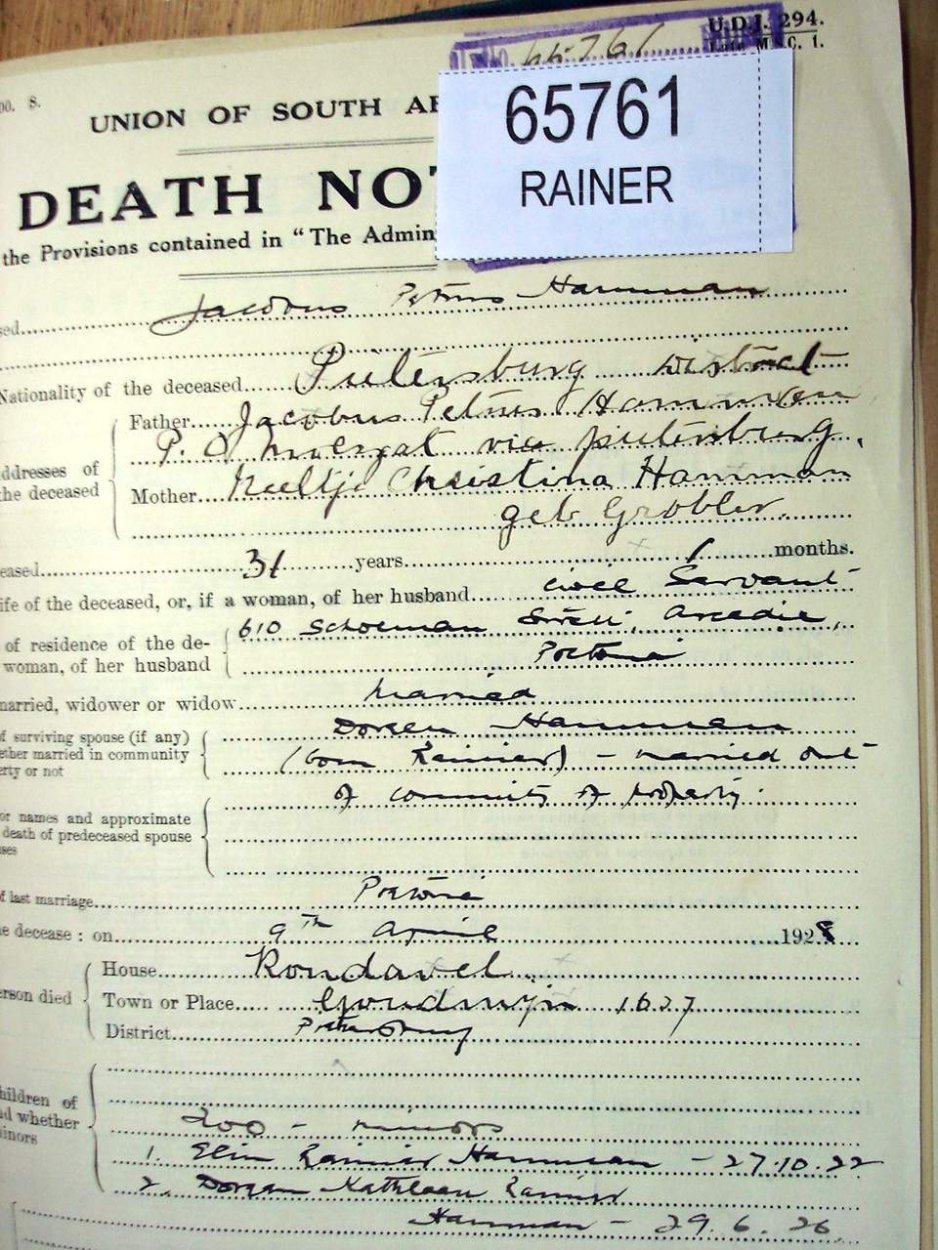 U.D.J. 294.
65761
No. 8.
UNION OF SOUTH AF
65761
RAINER
DEATH NOT
the Provisions contained in "The Admin
sed Jacobus Petrus Hamman
Nationality of the deceased Pietersburg District
Father Jacobus Petrus Hamman
P. O via pietersburg.
ddresses of
the deceased
Mother Neeltje Christina Hamman
geb Grobler.
eased 31 years 1 months.
ife of the deceased, or, if a woman, of her husband Civil Servant
of residence of the de-
woman, of her husband
610 Schoeman Street, Arcadia,
Pretoria
married, widower or widow married
f surviving spouse (if any)
ether married in community
erty or not
Doreen Hamman
(born Rainier) - married out
of community of property.
or names and approximate
death of predeceased spouse
ses
f last marriage Pretoria
e decease : on 9th April 1928
erson died
House Rondavel
Town or Place 1627
District Pietersburg
hildren of
nd whether
inors
Two - minors
1. Rainier Hamman - 27.10.22
2. Doreen Kathleen Rainier
Hamman - 29.6.26